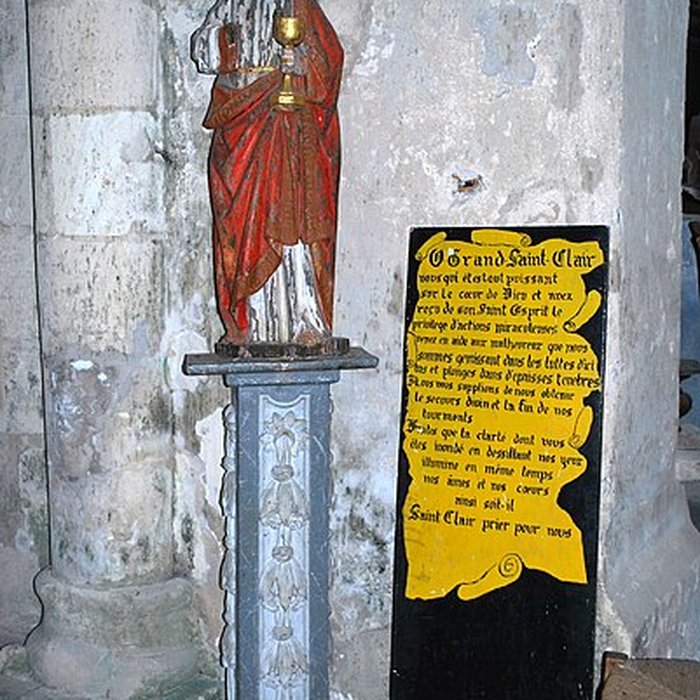 O Grand Saint Clair
vous qui êtes tout puissant
sur le cœur de Dieu et avez
reçu de son Saint Esprit le
privilège d'actions miraculeuses
venez en aide aux malheureux que nous
sommes gemissant dans les luttes d'ici
bas et plongés dans d'épaisses tenebres
Nous vous supplions de nous obtenir
le secours divin et la fin de nos
tourments
Faites que la clarté dont vous
êtes inondé en dessillant nos yeux
illumine en même temps
nos âmes et nos cœurs
ainsi soit-il
Saint Clair prier pour nous